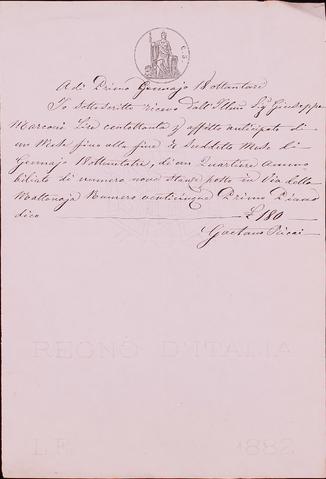 C. 5
A di Primo Gennajo 18ottantatre
Io Sottoscritto ricevo dall'Illmo Sig Giuseppe
Marconi Lire centottanta p affitto anticipato di
un Mese fino alla fine di Suddetto Mese di
Gennajo 18ottantatre, di un Quartiere Ammo
biliato di numero nove stanze posto in Via della
Mattonaja Numero venticinque Primo Piano
dico £ 180
Gaetano Ricci
REGNO D'ITALIA
1882